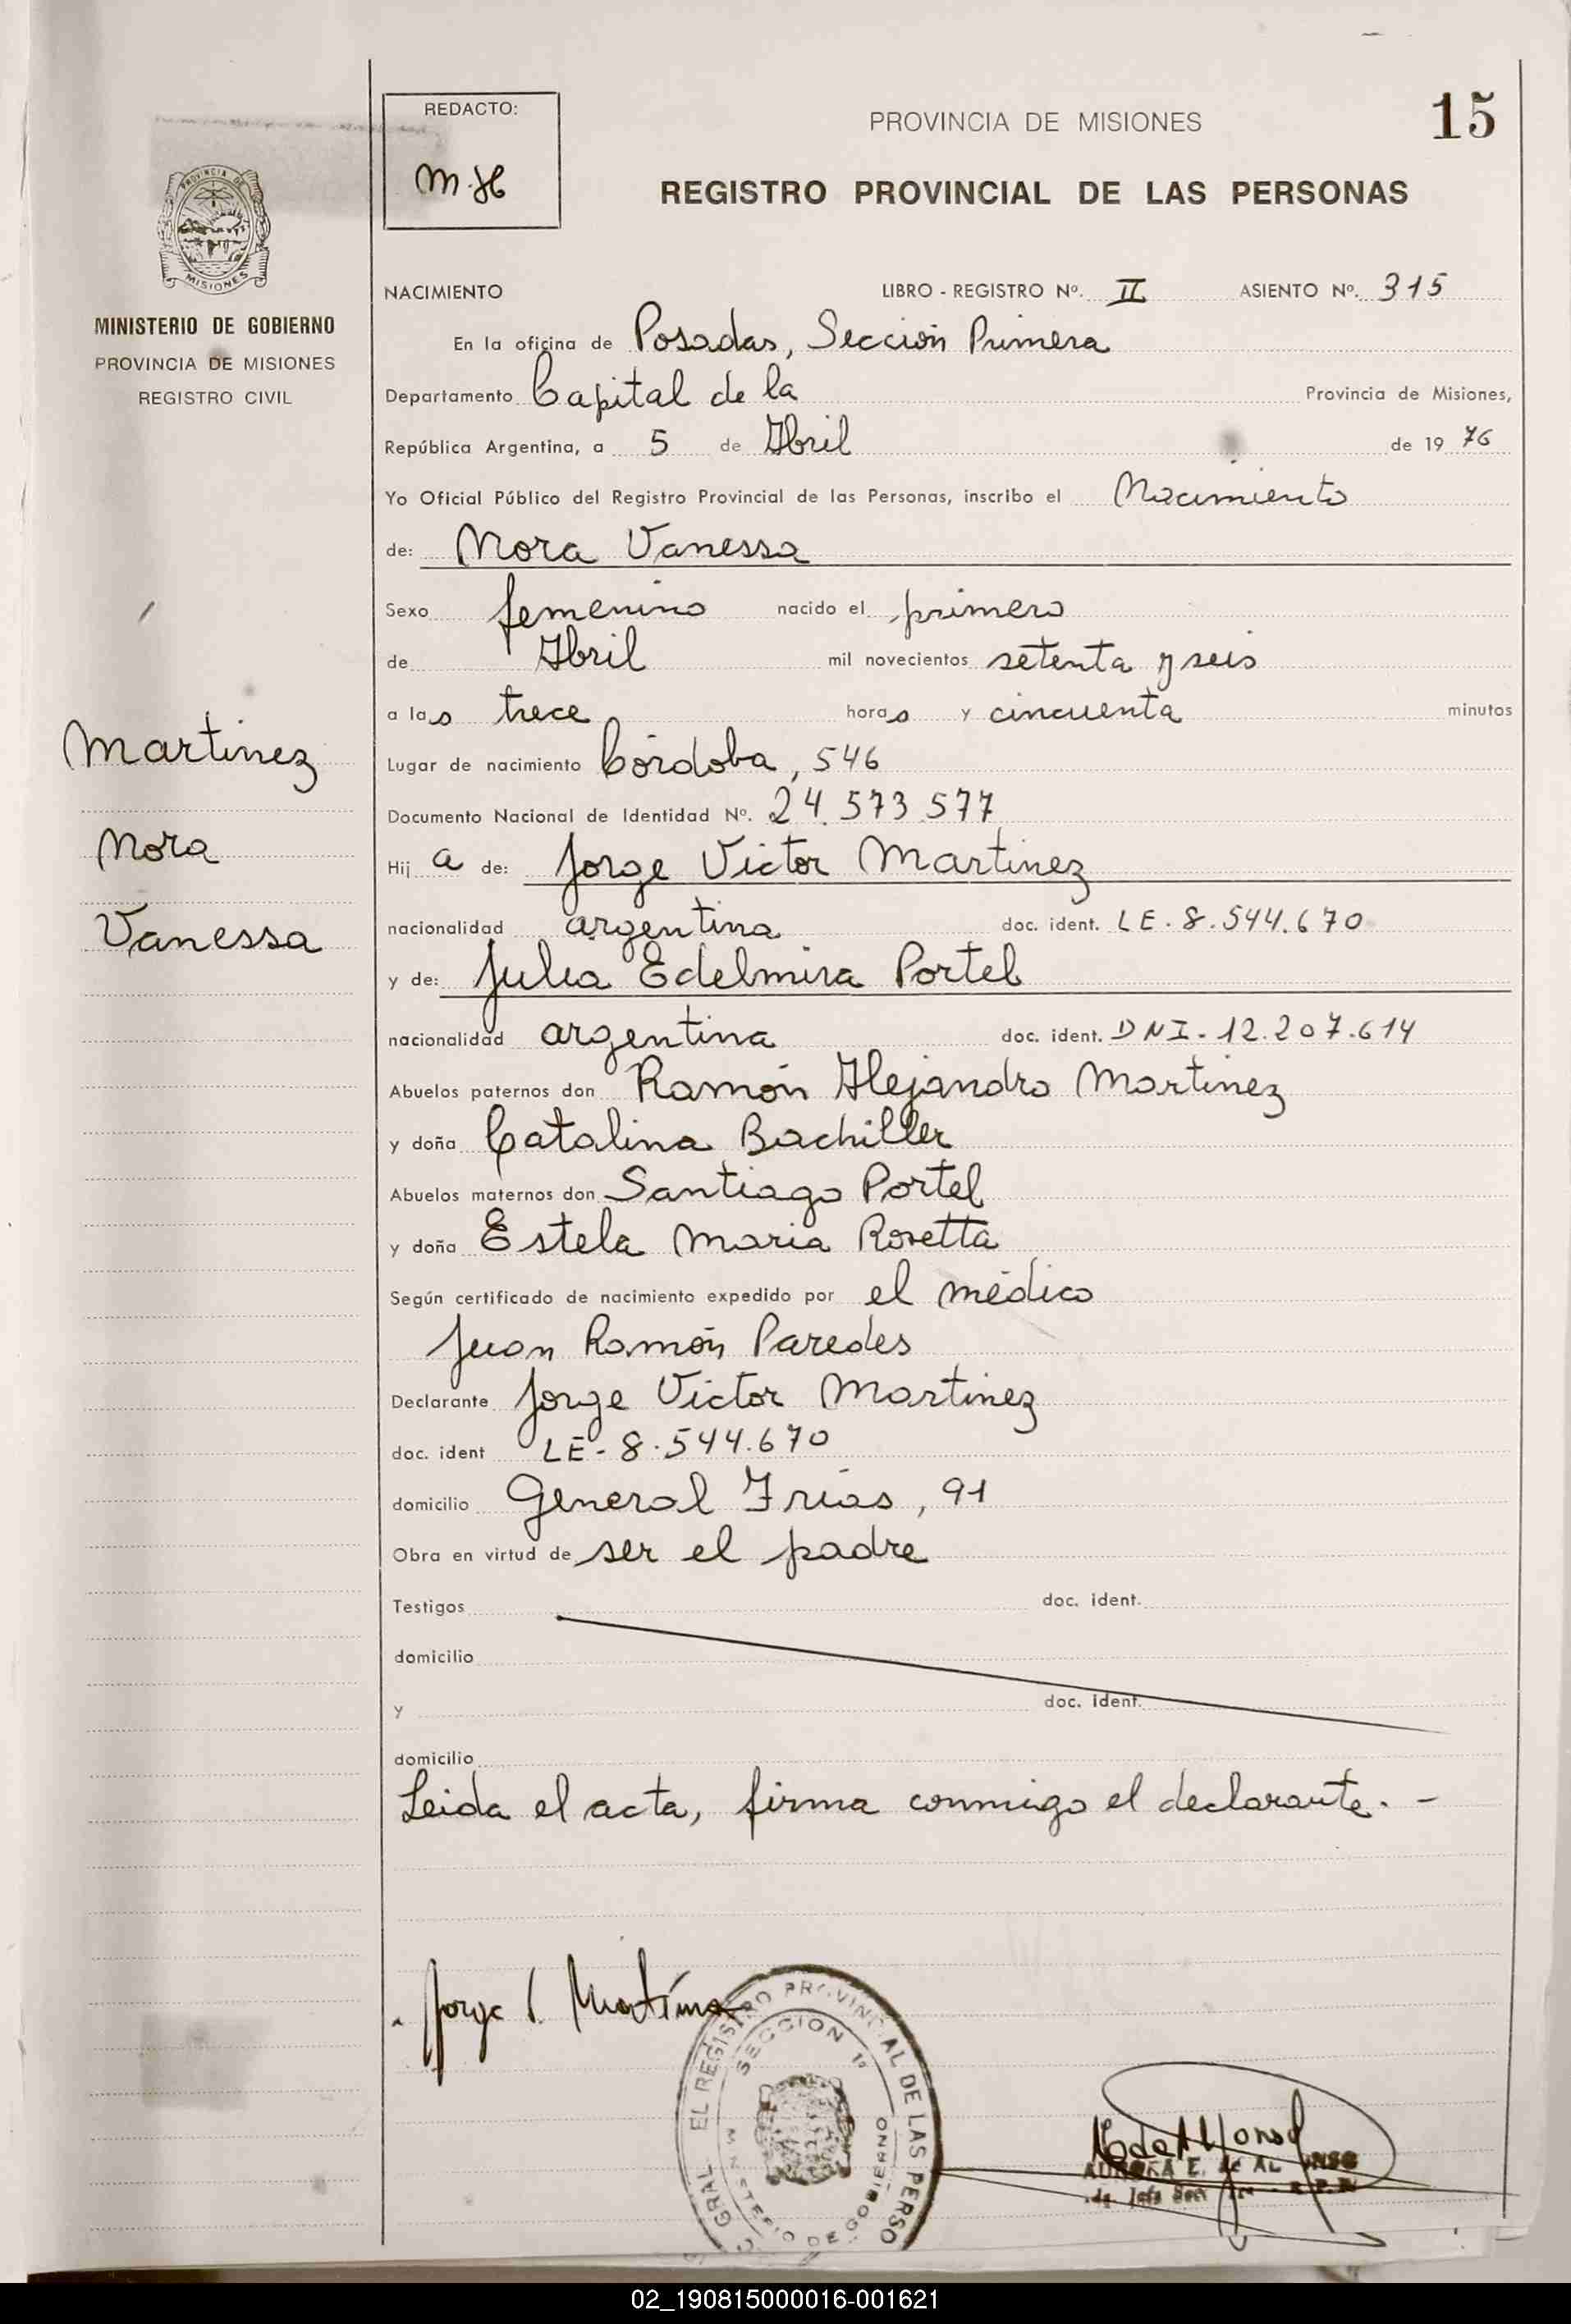 15
REDACTO:
M.H
PROVINCIA DE MISIONES
REGISTRO PROVINCIAL DE LAS PERSONAS
PROVINCIA DE
MISIONES
MINISTERIO DE GOBIERNO
PROVINCIA DE MISIONES
REGISTRO CIVIL
NACIMIENTO LIBRO - REGISTRO Nº. II ASIENTO Nº. 315
En la oficina de Posadas, Sección Primera
Departamento Capital de la Provincia de Misiones,
República Argentina, a 5 de Abril de 19 76
Yo Oficial Público del Registro Provincial de las Personas, inscribo el Nacimiento
de: Nora Vanessa
Sexo femenino nacido el primero
de Abril mil novecientos setenta y seis
a las trece horas y cincuenta minutos
Martinez
Lugar de nacimiento Córdoba, 546
Documento Nacional de Identidad Nº. 24.573.577
Nora
Hij a de: Jorge Victor Martinez
Vanessa
nacionalidad argentina doc. ident. LE. 8.544.670
y de: Julia Edelmira Portel
nacionalidad argentina doc. ident. DNI-12.207.614
Abuelos paternos don Ramón Alejandro Martinez
y doña Catalina Bachiller
Abuelos maternos don Santiago Portel
y doña Estela Maria Rovetta
Según certificado de nacimiento expedido por el médico
Juan Ramón Paredes
Declarante Jorge Victor Martinez
doc. ident LE-8.544.670
domicilio General Frias, 91
Obra en virtud de ser el padre
Testigos doc. ident.
domicilio
y doc. ident.
domicilio
Leida el acta, firma conmigo el declarante. -
Jorge V. Martínez
GRAL. EL REGISTRO PROVINCIAL DE LAS PERSO
SECCION 1ª
MINISTERIO DE GOBIERNO
AURORA E. de AL
02_190815000016-001621